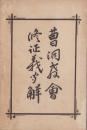 曹洞教會
修証義字解